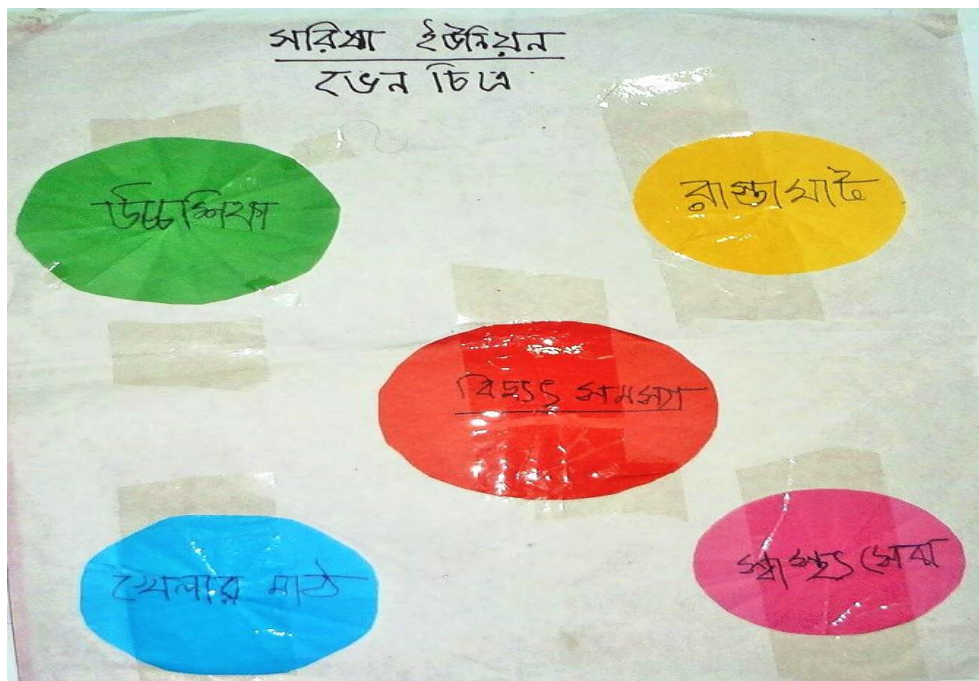 সরিষা ইউনিয়ন
ভেন চিত্র
উচ্চশিক্ষা
রাস্তাঘাট
বিদ্যুৎ সমস্যা
খেলার মাঠ
স্বাস্থ্য সেবা